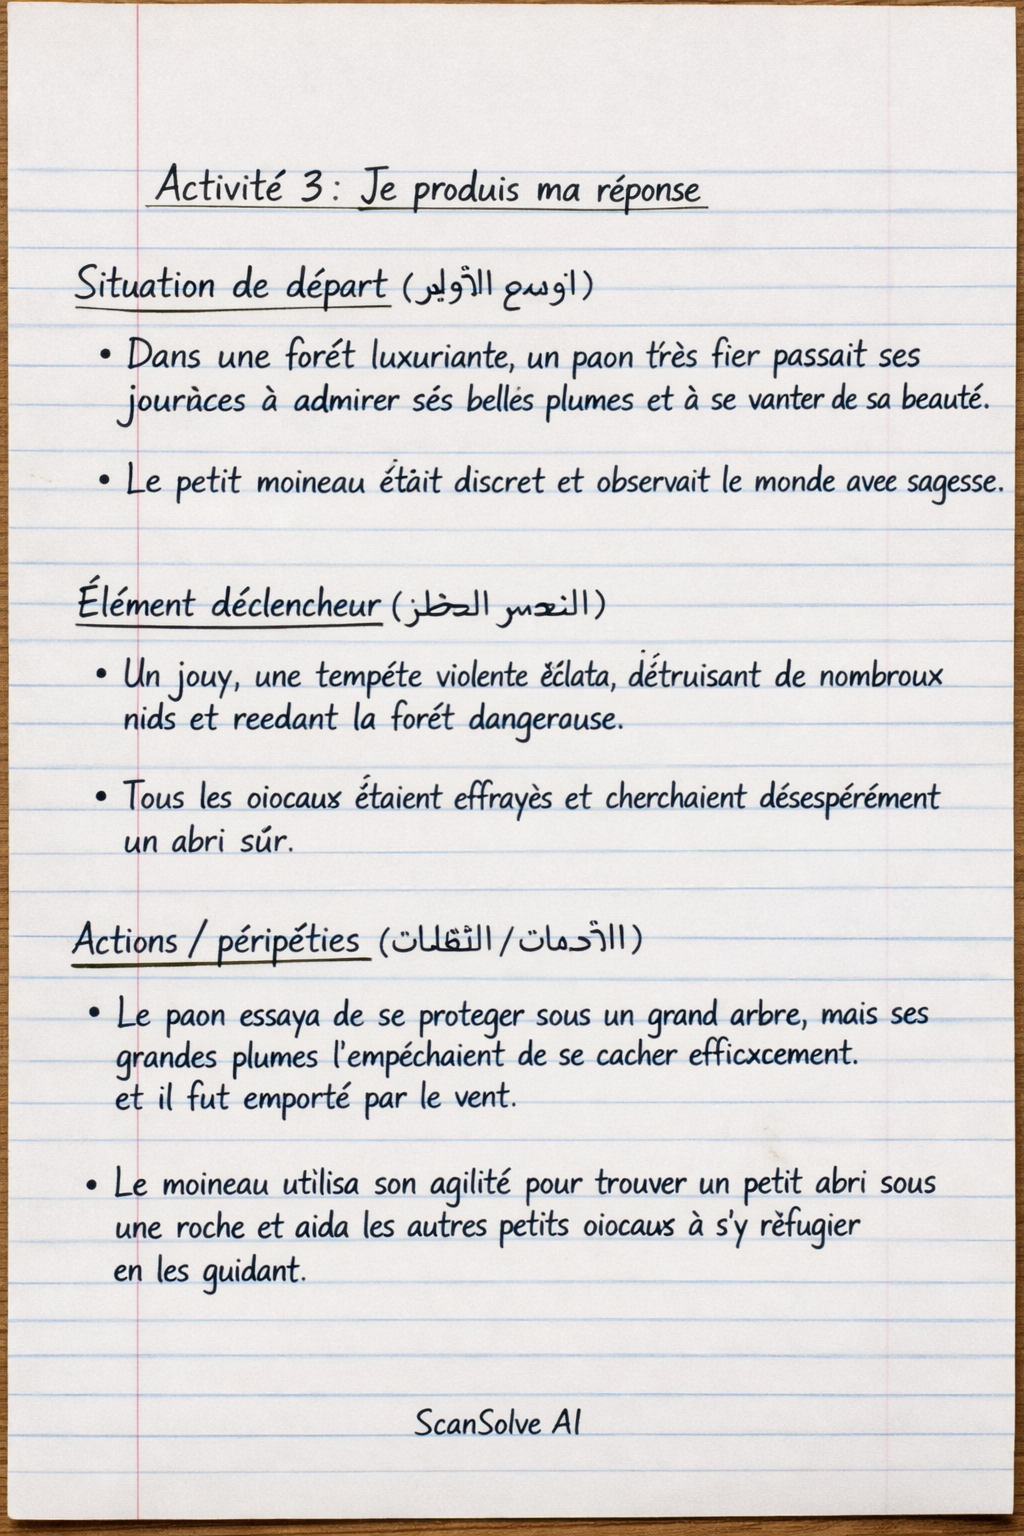 Activité 3 : Je produis ma réponse
Situation de départ
• Dans une forét luxuriante, un paon très fier passait ses
jouràces à admirer sés bellés plumes et à se vanter de sa beauté.
• Le petit moineau était discret et observait le monde avee sagesse.
Élément déclencheur
• Un jouy, une tempéte violente éclata, détruisant de nombroux
nids et reedant la forét dangerause.
• Tous les oiocaux étaient effrayès et cherchaient désespérément
un abri súr.
Actions / péripéties
• Le paon essaya de se proteger sous un grand arbre, mais ses
grandes plumes l'empéchaient de se cacher efficxcement.
et il fut emporté par le vent.
• Le moineau utilisa son agilité pour trouver un petit abri sous
une roche et aida les autres petits oiocaus à s'y rěfugier
en les guidant.
ScanSolve AI